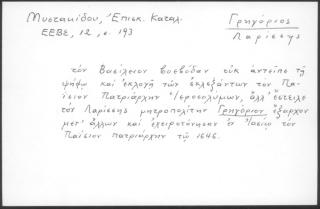 Μυστακίδου, Ἐπισκ. Καταλ.
ΕΕΒΣ, 12, σ. 193
Γρηγόριος
Λαρίσσης
τὸν Βασίλειον βοεβόδαν οὐκ ἀντεῖπε τῇ
ψήφῳ καὶ ἐκλογῇ τῶν ἐκλεξάντων τὸν Πα-
ΐσιον Πατριάρχην Ἱεροσολύμων, ἀλλ' ἔστειλε
τὸν Λαρίσσης μητροπολίτην Γρηγόριον ἔξαρχον
μετ' ἄλλων καὶ ἐχειροτόνησεν ἐν Ἰασίῳ τὸν
Παΐσιον πατριάρχην τῷ 1646.